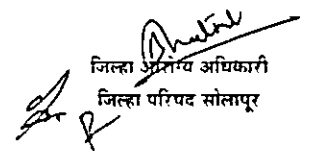 जिल्हा आरोग्य अधिकारी
जिल्हा परिषद सोलापूर